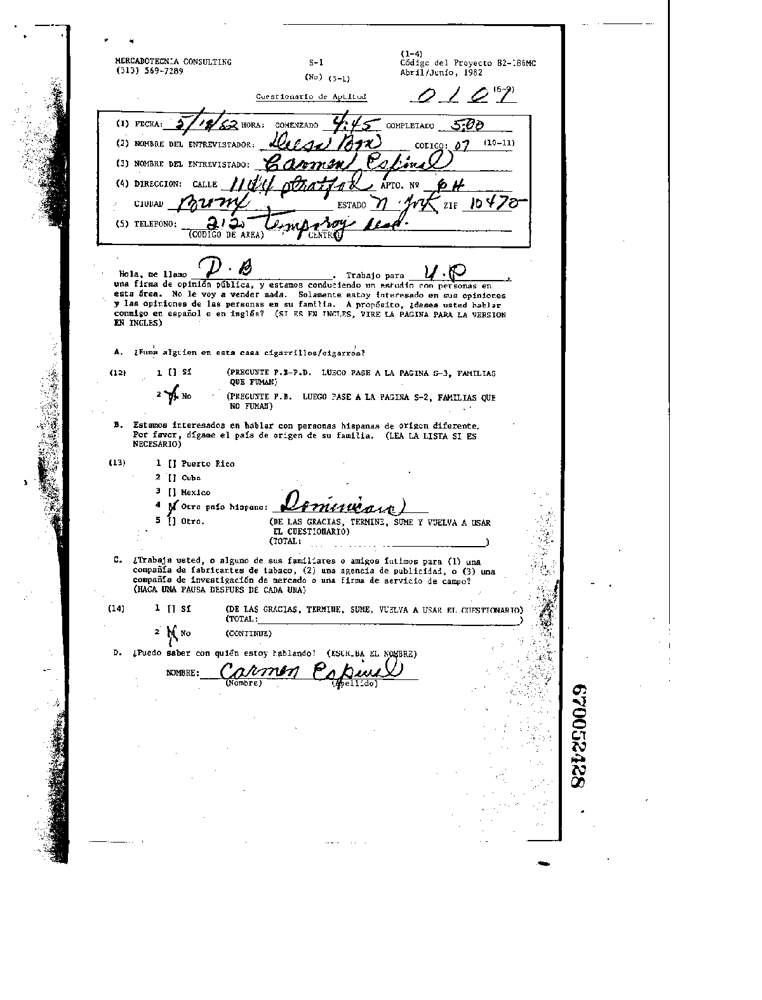 MERCADOTECNIA CONSULTING
(513) 569-7289
S-1
(No) (S-L)
(1-4)
Código del Proyecto 82-186MC
Abril/Junio, 1982
Cuestionario de Aptitud
0 1 0 9 (6-9)
(1) FECHA: 5/18/82 HORA: COMENZADO 4:45 COMPLETADO 5:00
(2) NOMBRE DEL ENTREVISTADOR: CODIGO: 07 (10-11)
(3) NOMBRE DEL ENTREVISTADO: Carmen Espinal
(4) DIRECCION: CALLE APTO. Nº
CIUDAD Bronx ESTADO N. York ZIP 10470
(5) TELEFONO: 212
(CODIGO DE AREA) CENTRO
Hola, me llamo D. B . Trabajo para ,
una firma de opinión pública, y estamos conduciendo un estudio con personas en
esta área. No le voy a vender nada. Solamente estoy interesado en sus opiniones
y las opiniones de las personas en su familia. A propósito, ¿desea usted hablar
conmigo en español o en inglés? (SI ES EN INGLES, VIRE LA PAGINA PARA LA VERSION
EN INGLES)
A. ¿Fuma alguien en esta casa cigarrillos/cigarros?
(12) 1 [] Sí (PREGUNTE P.B-P.D. LUEGO PASE A LA PAGINA S-3, FAMILIAS
QUE FUMAN)
2 No (PREGUNTE P.B. LUEGO PASE A LA PAGINA S-2, FAMILIAS QUE
NO FUMAN)
B. Estamos interesados en hablar con personas hispanas de origen diferente.
Por favor, dígame el país de origen de su familia. (LEA LA LISTA SI ES
NECESARIO)
(13) 1 [] Puerto Rico
2 [] Cuba
3 [] Mexico
4 Otro país hispano: Dominicana
5 [] Otro. (DE LAS GRACIAS, TERMINE, SUME Y VUELVA A USAR
EL CUESTIONARIO)
(TOTAL: )
C. ¿Trabaja usted, o alguno de sus familiares o amigos íntimos para (1) una
compañía de fabricantes de tabaco, (2) una agencia de publicidad, o (3) una
compañía de investigación de mercado o una firma de servicio de campo?
(HAGA UNA PAUSA DESPUES DE CADA UNA)
(14) 1 [] SI (DE LAS GRACIAS, TERMINE, SUME, VUELVA A USAR EL CUESTIONARIO)
(TOTAL: )
2 No (CONTINUE)
D. ¿Puedo saber con quién estoy hablando? (ESCRIBA EL NOMBRE)
NOMBRE: Carmen Espinal
(Nombre) (Apellido)
670052428